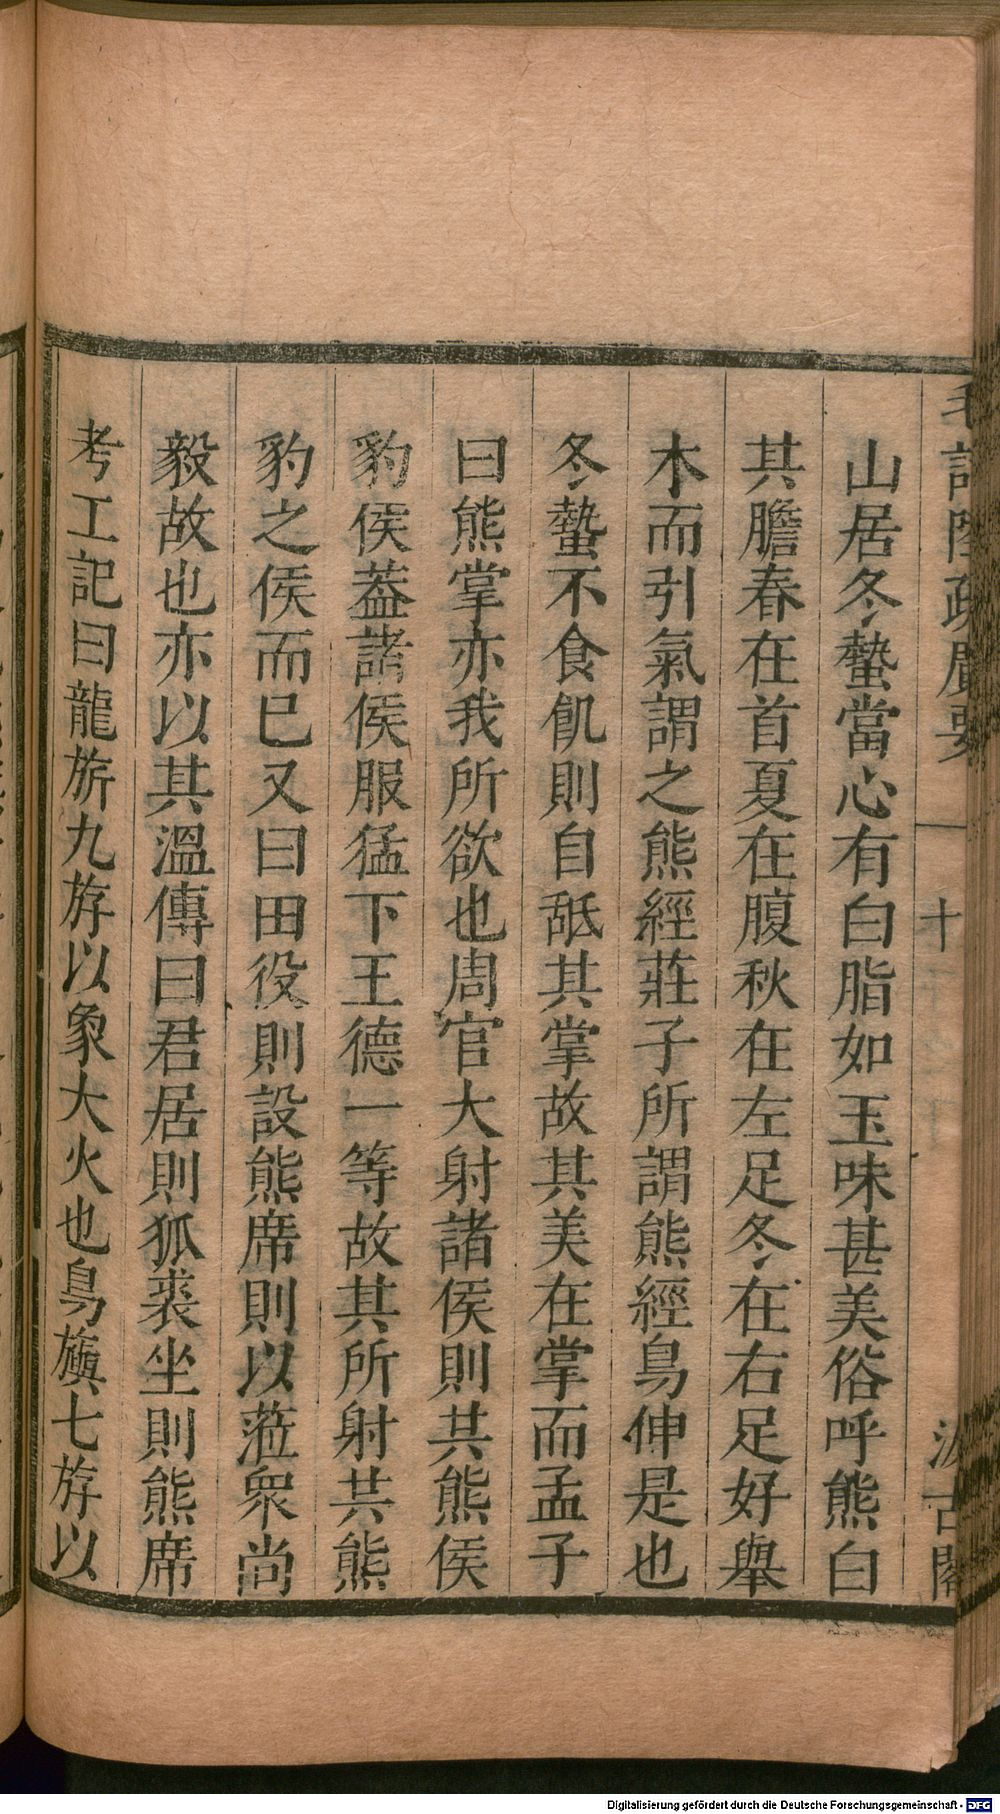 毛詩陸疏廣要
十
汲古閣
山居冬蟄當心有白脂如玉味甚美俗呼熊白
其膽春在首夏在腹秋在左足冬在右足好舉
木而引氣謂之熊經莊子所謂熊經鳥伸是也
冬蟄不食飢則自舐其掌故其美在掌而孟子
曰熊掌亦我所欲也周官大射諸侯則共熊侯
豹侯葢諸侯服猛下王德一等故其所射共熊
豹之侯而已又曰田役則設熊席則以蒞衆尚
毅故也亦以其溫傳曰君居則狐裘坐則熊席
考工記曰龍旂九斿以象大火也鳥旟七斿以
Digitalisierung gefördert durch die Deutsche Forschungsgemeinschaft - DFG